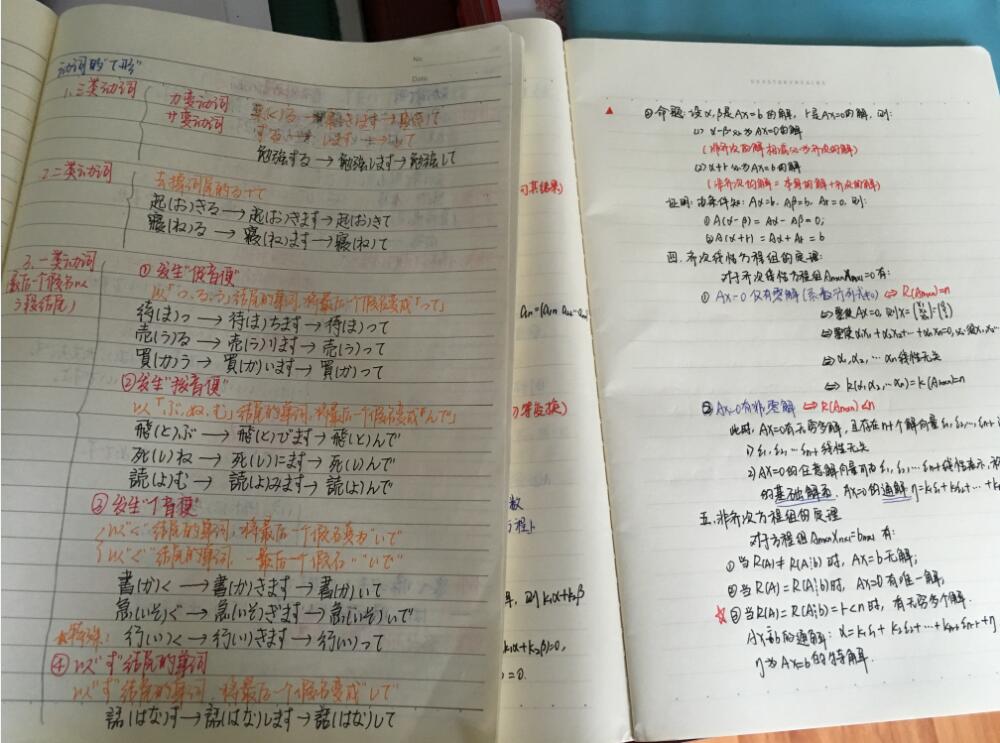 No.
Date.
动词的"て形"
1. 三类动词
カ变动词
サ变动词
来(く)る → 来きます → 来きて
する → します → して
勉強する → 勉強します → 勉強して
2. 二类动词
去掉词尾的る+て
起(お)きる → 起(お)きます → 起(お)きて
寝(ね)る → 寝(ね)ます → 寝(ね)て
3. 一类动词
(最后一个假名以
う段结尾)
① 发生"促音便"
以「つ、る、う」结尾的单词,将最后一个假名变成「って」
待(ま)つ → 待(ま)ちます → 待(ま)って
売(う)る → 売(う)ります → 売(う)って
買(か)う → 買(か)います → 買(か)って
② 发生"拨音便"
以「ぶ、ぬ、む」结尾的单词,将最后一个假名变成「んで」
飛(と)ぶ → 飛(と)びます → 飛(と)んで
死(し)ぬ → 死(し)にます → 死(し)んで
読(よ)む → 読(よ)みます → 読(よ)んで
③ 发生"イ音便"
以"く"结尾的单词,将最后一个假名变为"いて"
以"ぐ"结尾的单词,一最后一个假名一"いで"
書(か)く → 書(か)きます → 書(か)いて
急(いそ)ぐ → 急(いそ)ぎます → 急(いそ)いで
特殊: 行(い)く → 行(い)きます → 行(い)って
④ 以"す"结尾的单词
以"す"结尾的单词,将最后一个假名变成"して"
話(はな)す → 話(はな)します → 話(はな)して
等变换)
数
方程)
则k₁α+k₂β
k₁α+k₂β)=0,
=0.
② 命题: 设α,β是AX=b的解, r是AX=0的解, 则:
(1) α-β 必为AX=0的解
(非齐次的解相减必为齐次的解)
(2) α+r 必为AX=b的解
(非齐次的解=本身的解+齐次的解)
证明: 由条件知: Aα=b. Aβ=b. Ar=0. 则:
① A(α-β) = Aα-Aβ=0;
② A(α+r) = Aα+Ar = b
四. 齐次线性方程组的定理:
对于齐次线性方程组AₘₓₙXₙₓ₁=0有:
① AX=0 仅有零解(系数行列式≠0) ⇔ R(Aₘₓₙ)=n
⇔ α₁,α₂,…αₙ线性无关
⇔ R(α₁,α₂,…αₙ)=R(Aₘₓₙ)=n
② AX=0有非零解 ⇔ R(Aₘₓₙ)<n
此时, AX=0有无穷多解, 且存在n-r个解向量ε₁,ε₂,…,εₙ₋ᵣ
1) ε₁,ε₂,…εₙ₋ᵣ线性无关
2) AX=0的任意解向量可由ε₁,ε₂,…εₙ₋ᵣ线性表示,
的基础解系. AX=0的通解η=k₁ε₁+k₂ε₂+…+k
五. 非齐次方程组的定理
对于方程组AₘₓₙXₙₓ₁=bₘₓ₁有:
① 当R(A)≠R(A¦b)时, AX=b无解;
② 当R(A)=R(A¦b)时, AX=b有唯一解;
③ 当R(A)=R(A¦b)=r<n时, 有无穷多个解.
AX=b的通解: α=k₁ε₁+k₂ε₂+…+kₙ₋ᵣεₙ₋ᵣ+η
η为AX=b的特解.